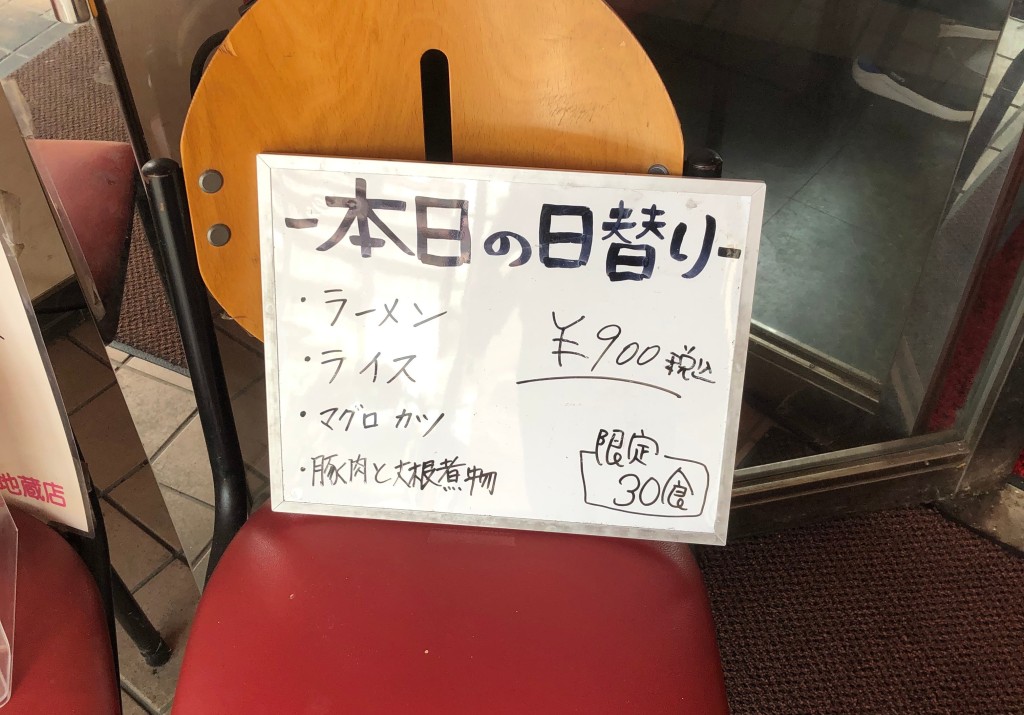 -本日の日替り-
・ラーメン
・ライス
・マグロカツ
・豚肉と大根煮物
¥900税込
限定
30食
地蔵店